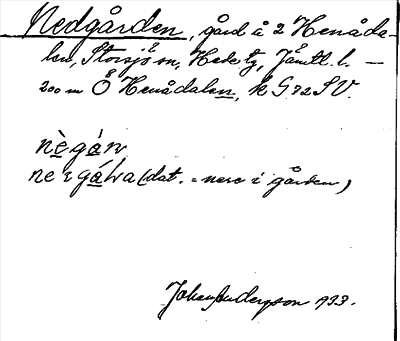 Nedgården, gård å 2 Henåda-
len, Storsjö sn, Hede tg, Jämtl. l. —
200 m Ö Henådalen, k G. 72 SV.
nègáṛn
ne i gáɫva (dat. = nere i gården)
Johan Anderzson 1933.